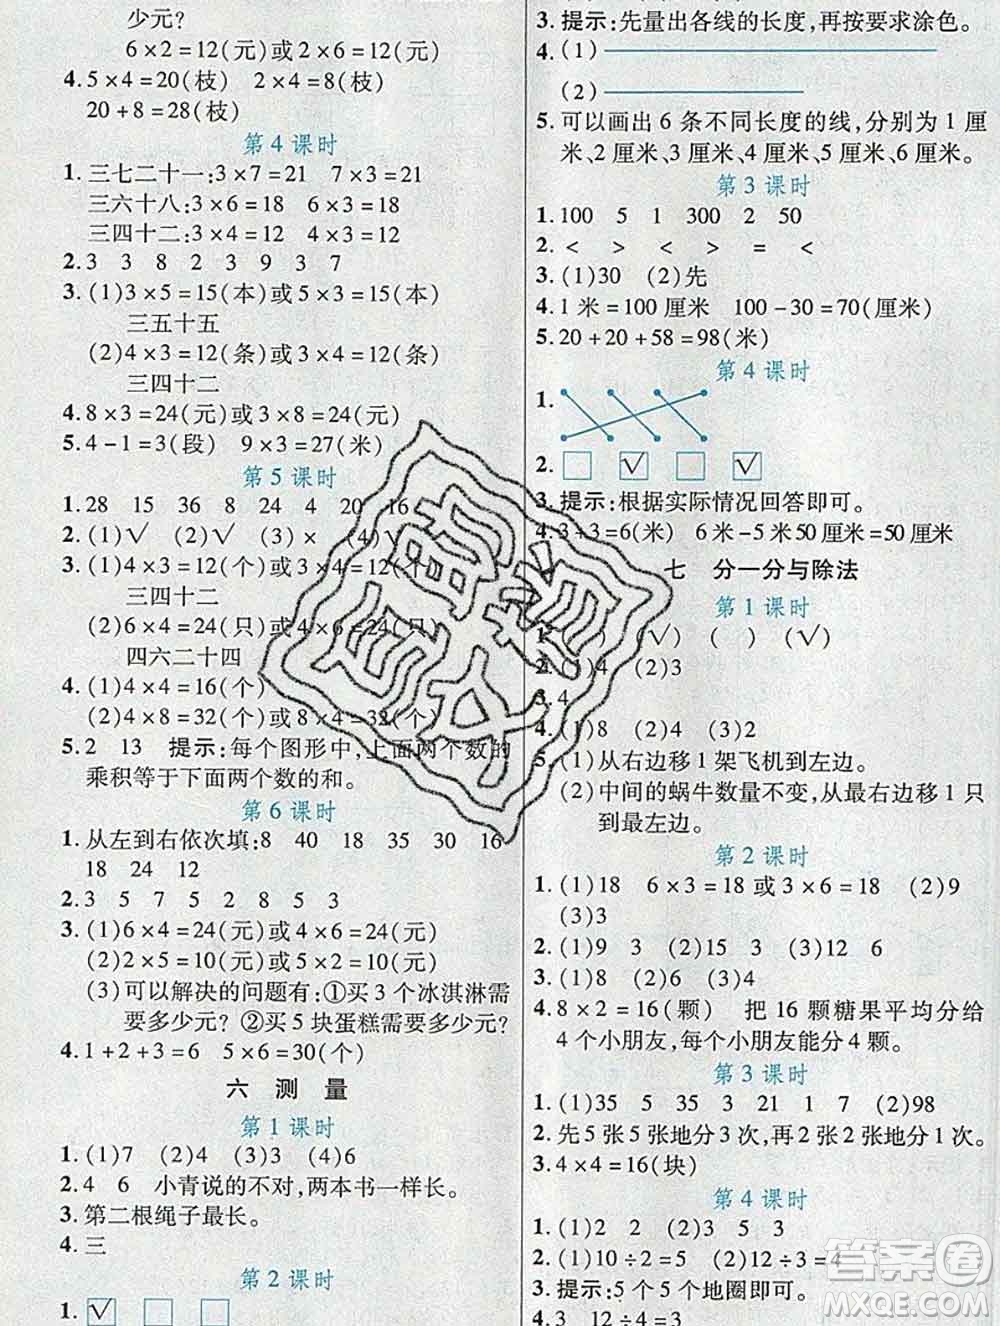 少元?
6×2=12(元)或2×6=12(元)
4.5×4=20(枝) 2×4=8(枝)
20+8=28(枝)
第4课时
1.三七二十一:3×7=21 7×3=21
三六十八:3×6=18 6×3=18
三四十二:3×4=12 4×3=12
2.3 3 8 2 3 9 3 7
3.(1)3×5=15(本)或5×3=15(本)
三五十五
(2)4×3=12(条)或3×4=12(条)
三四十二
4.8×3=24(元)或3×8=24(元)
5.4-1=3(段) 9×3=27(米)
第5课时
1.28 15 36 8 24 4 20 16
2.(1)√ (2)√ (3)× (4)√
3.(1)3×4=12( )或4×3=12( )
三四十二
(2)6×4=24(只)或4×6=24(只)
四六二十四
4.(1)4×4=16(个)
(2)4×8=32(个)或8×4=32(个)
5.2 13 提示:每个图形中,上面两个数的
乘积等于下面两个数的和。
第6课时
1.从左到右依次填:8 40 30 16
18 24 12
2.3 5 7 5 8 5 3
3.(1)6×4=24(元)或4×6=24(元)
(2)2×5=10(元)或5×2=10(元)
(3)可以解决的问题有:①买3个冰淇淋需
要多少元? ②买5块蛋糕需要多少元?
4.1+2+3=6 5×6=30(个)
六 测 量
第1课时
1.(1)7 (2)4 (3)3 (4)6
2.4 6 小青说的不对,两本书一样长。
3.第二根绳子最长。
4.三
第2课时
1.☑ □ □
3.提示:先量出各线的长度,再按要求涂色。
4.(1)
(2)
5.可以画出6条不同长度的线,分别为1厘
米、2厘米、3厘米、4厘米、5厘米、6厘米。
第3课时
1.100 5 1 300 2 50
2.< < > > = <
3.(1)30 (2)先
4.1米=100厘米 100-30=70(厘米)
5.20+20+58=98(米)
第4课时
1.
2.□ ☑ □ ☑
3.提示:根据实际情况回答即可。
4.3+3=6(米) 6米-5米50厘米=50厘米
七 分一分与除法
第1课时
1.( ) (√) ( ) (√)
2.(1)4 (2)3
3.4
4.(1)8 (2)4 (3)2
5.(1)从右边移1架飞机到左边。
(2)中间的蜗牛数量不变,从最右边移1只
到最左边。
第2课时
1.(1)18 6×3=18或3×6=18 (2)9
(3)3
2.(1)9 3 (2)15 3 (3)12 6
3.(1)8 (2)6 (3)4
4.8×2=16(颗) 把16颗糖果平均分给
4个小朋友,每个小朋友能分4颗。
第3课时
1.(1)35 5 35 3 21 1 7 (2)98
2.先5张5张地分3次,再2张2张地分1次。
3.4×4=16(块)
第4课时
1.(1)2 2 (2)3 5 3
2.(1)10÷2=5 (2)12÷3=4
3.提示:5个5个地圈即可。
4.3 12÷4=3
答案圈
MXQE.COM